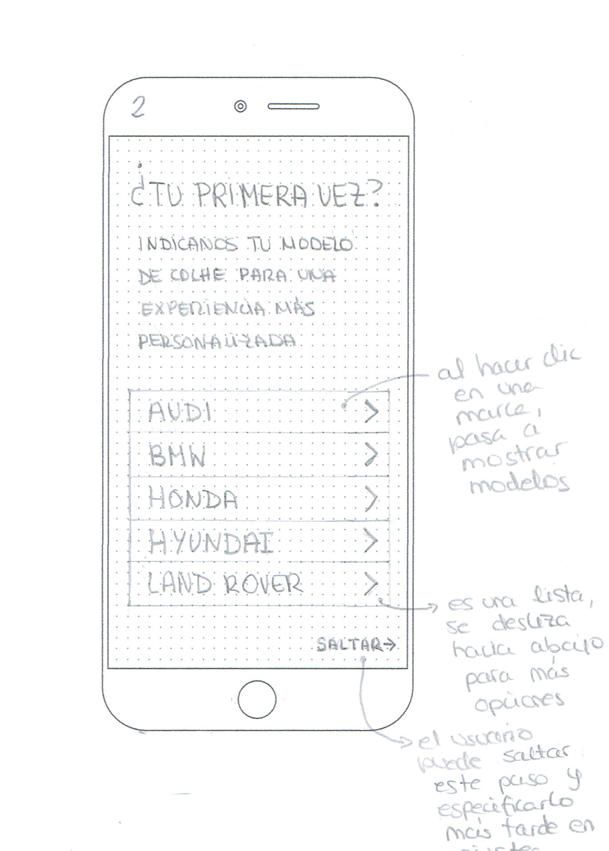 2
¿TU PRIMERA VEZ?
INDÍCANOS TU MODELO
DE COCHE PARA UNA
EXPERIENCIA MÁS
PERSONALIZADA
AUDI
BMW
HONDA
HYUNDAI
LAND ROVER
SALTAR→
al hacer clic
en una
marca,
pasa a
mostrar
modelos
es una lista,
se desliza
hacia abajo
para más
opciones
el usuario
puede saltar
este paso y
especificarlo
más tarde en